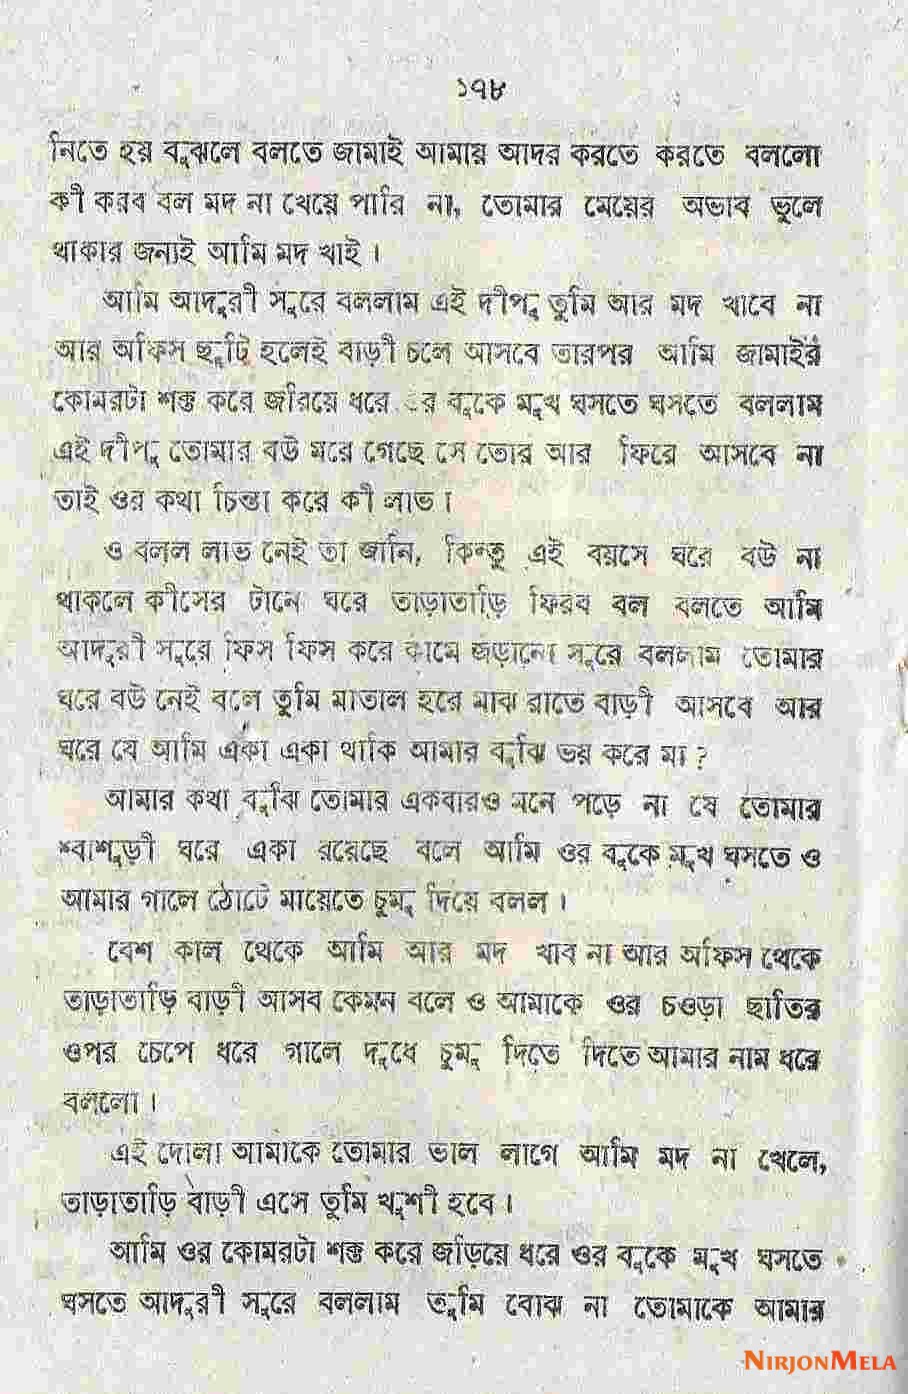 ১৭৮
নিতে হয় বুঝলে বলতে জামাই আমায় আদর করতে করতে বললো
কী করব বল মদ না খেয়ে পারি না, তোমার মেয়ের অভাব ভুলে
থাকার জন্যই আমি মদ খাই।
আমি আদুরী সুরে বললাম এই দীপু তুমি আর মদ খাবে না
আর অফিস ছুটি হলেই বাড়ী চলে আসবে তারপর আমি জামাইর
কোমরটা শক্ত করে জরিয়ে ধরে ওর বুকে মুখ ঘসতে ঘসতে বললাম
এই দীপু তোমার বউ মরে গেছে সে তোর আর ফিরে আসবে না
তাই ওর কথা চিন্তা করে কী লাভ।
ও বলল লাভ নেই তা জানি, কিন্তু এই বয়সে ঘরে বউ না
থাকলে কীসের টানে ঘরে তাড়াতাড়ি ফিরব বল বলতে আমি
আদুরী সুরে ফিস ফিস করে কামে জড়ানো সুরে বললাম তোমার
ঘরে বউ নেই বলে তুমি মাতাল হরে মাঝ রাতে বাড়ী আসবে আর
ঘরে যে আমি একা একা থাকি আমার বুঝি ভয় করে মা?
আমার কথা বুঝি তোমার একবারও মনে পড়ে না যে তোমার
শ্বাশুড়ী ঘরে একা রয়েছে বলে আমি ওর বুকে মুখ ঘসতে ও
আমার গালে ঠোটে মায়েতে চুমু দিয়ে বলল।
বেশ কাল থেকে আমি আর মদ খাব না আর অফিস থেকে
তাড়াতাড়ি বাড়ী আসব কেমন বলে ও আমাকে ওর চওড়া ছাতির
ওপর চেপে ধরে গালে দুধে চুমু দিতে দিতে আমার নাম ধরে
বললো।
এই দোলা আমাকে তোমার ভাল লাগে আমি মদ না খেলে,
তাড়াতাড়ি বাড়ী এসে তুমি খুশী হবে।
আমি ওর কোমরটা শক্ত করে জড়িয়ে ধরে ওর বুকে মুখ ঘসতে
ঘসতে আদুরী সুরে বললাম তুমি বোঝ না তোমাকে আমার
NIRJONMELA